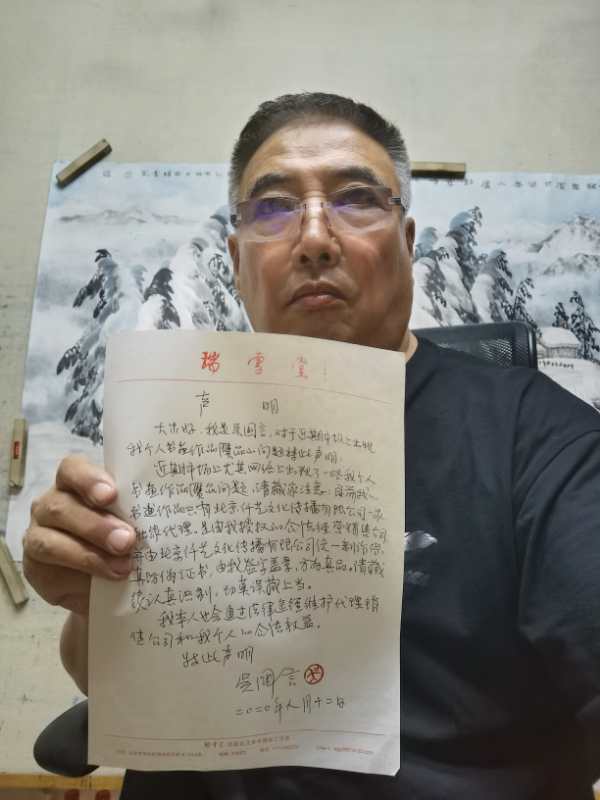 瑞雪堂
声明
大家好,我是吴国言,对于近期市场上出现
我个人书画作品赝品问题特此声明:
近期市场上尤其网络上出现了一些我个人
书画作品赝品问题,请藏家注意,目前我
书画作品已有北京仟艺文化传播有限公司一家
独家代理,是由我授权的合法经营销售公司
并由北京仟艺文化传播有限公司统一制作仿
真防伪证书,由我签字盖章,方为真品。请藏
家认真识别,切莫误藏上当。
我本人也会通过法律途径维护代理销
售公司和我个人的合法权益。
特此声明
吴国言
二〇二〇年八月十二日